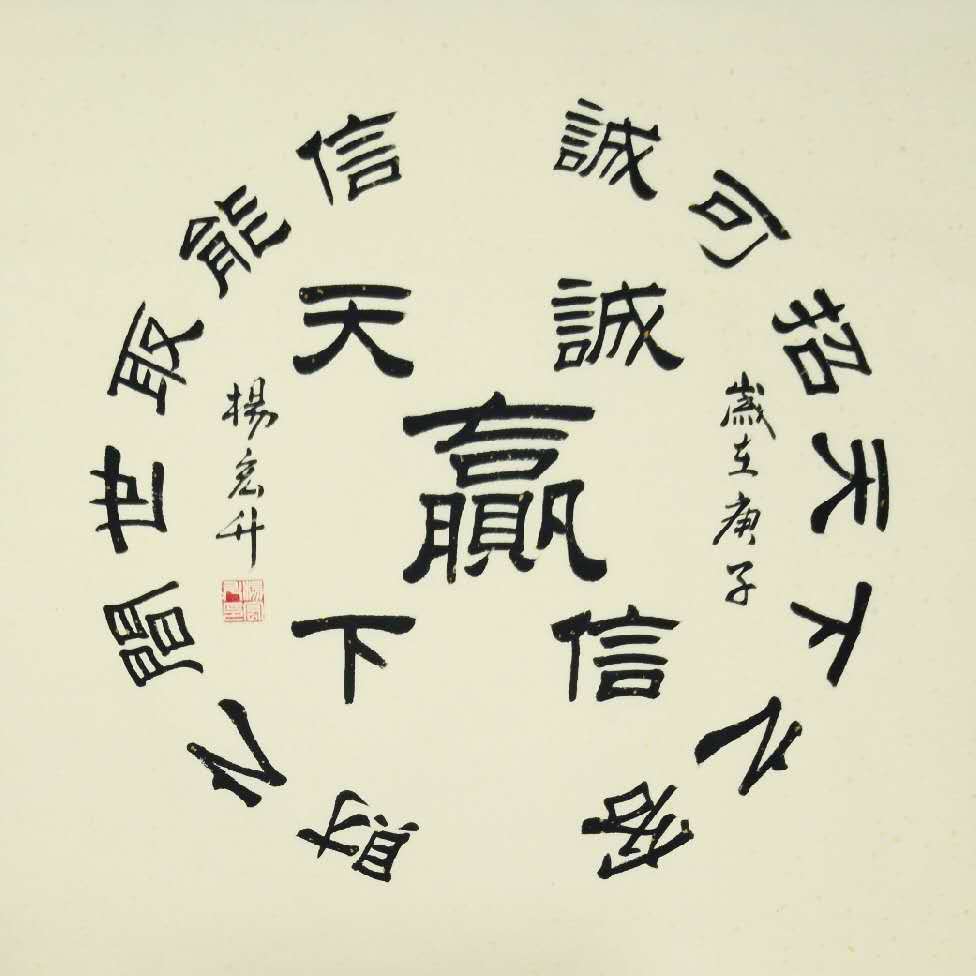 誠可招天下之客
信能取世間之財
誠信贏天下
歲在庚子
楊宏升